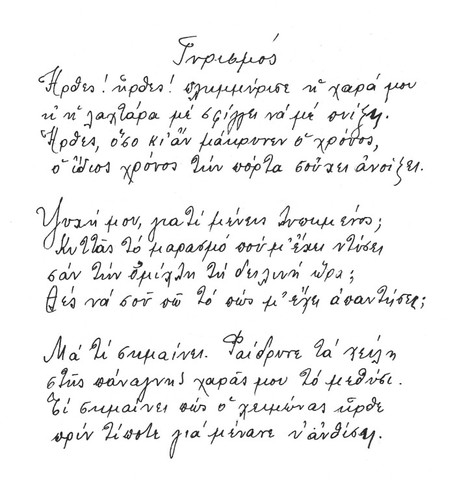 Γυρισμός
Ἦρθες! ἦρθες! πλημμύρισε ἡ χαρά μου
κι ἡ λαχτάρα μέ σφίγγει νά μέ πνίξῃ.
Ἦρθες, ὅσο κι ἄν μάκρυνεν ὁ χρόνος,
ὁ ἴδιος χρόνος τήν πόρτα σοὔχει ἀνοίξει.
Ψυχή μου, γιατί μένεις λυπημένος;
Κυττᾶς τό μαρασμό πού μ' ἔχει ντύσει
σάν τήν ὁμίχλη τή δειλινή ὥρα;
Θές νά σοῦ πῶ τό πώς μ' ἔχει ἀπαντήσει;
Μά τί σημαίνει. Φαίδρυνε τά χείλη
στῆς πάναγνης χαρᾶς μου τό μεθύσι.
Τί σημαίνει πώς ὁ χειμώνας ἦρθε
πρίν τίποτε γιά μένανε ν' ἀνθίσῃ.